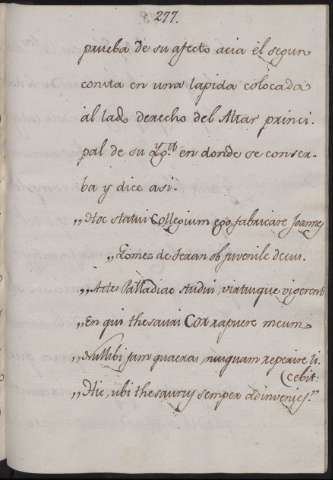 277.
prueba de su afecto acia él segun
consta en una lapida colocada
al lado derecho del Altar princi
pal de su Yg.ª en donde se conser-
ba y dice asi.
„Hoc statui Collegium ego fabricare Joannes
„Gomez de ob juvenile decus.
„Arte Palladiae studui, viatuque vigerent
„En qui thesauri COR rapuere meum
„Nullibi jam quaeras, nusquam reperire li-
cebit
„Hic, ubi thesaurus semper adinvenies."